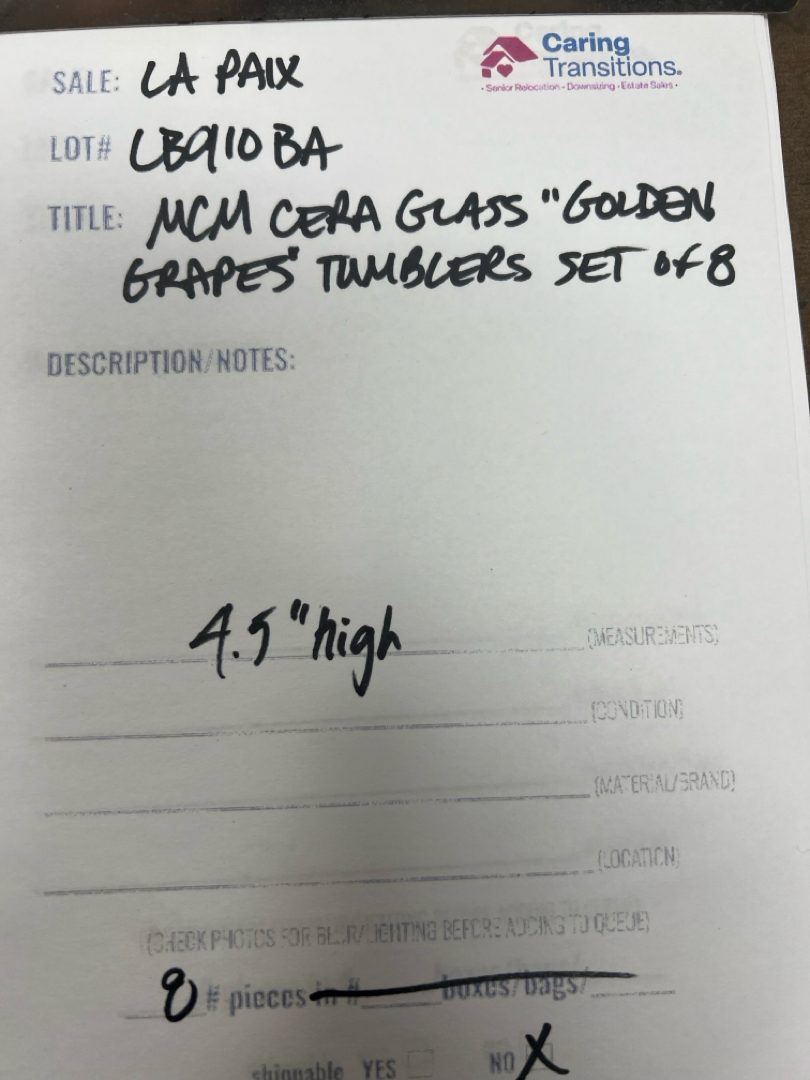 Caring
Transitions.
· Senior Relocation · Downsizing · Estate Sales ·
SALE: LA PAIX
LOT# LB910BA
TITLE: MCM CERA GLASS "GOLDEN
GRAPES" TUMBLERS SET of 8
DESCRIPTION/NOTES:
4.5" high (MEASUREMENTS)
(CONDITION)
(MATERIAL/BRAND)
(LOCATION)
(CHECK PHOTOS FOR BLUR/LIGHTING BEFORE ADDING TO QUEUE)
8 # pieces in # boxes/bags/
shippable YES NO X